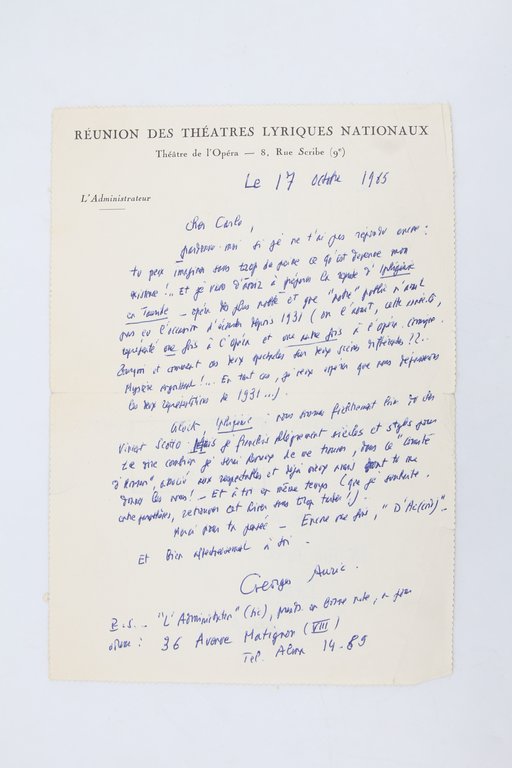 RÉUNION DES THÉATRES LYRIQUES NATIONAUX
Théâtre de l'Opéra — 8, Rue Scribe (9e)
Le 17 octobre 1965
L'Administrateur
Cher Carlo,
pardonne-moi si je ne t'ai pas répondu encore :
tu peux imaginer sans trop de peine ce qu'est devenue mon
existence !.. Et je viens d'avoir à préparer la reprise d'Iphigénie
en Tauride — opéra des plus et que "notre" public n'avait
pas eu l'occasion d'écouter depuis 1931 (on l'avait, cette année-là,
représenté une fois à l'Opéra et une autre fois à l'opéra-comique.
Pourquoi et comment ces deux spectacles sur deux scènes différentes ??..
Mystère !... En tout cas, je veux espérer que nous dépasserons
les deux représentations de 1931...)
Gluck, Iphigénie : nous sommes loin de
Vincent Scotto. Mais je siècles et styles pour
te dire combien je serai heureux de me trouver, dans ce "Comité
d'Honneur", associé aux respectables et déjà vieux amis dont tu me
donnes les noms ! — Et à toi en même temps (que je souhaite,
entre parenthèses, retrouver et sans trop tarder !).
Merci pour ta pensée — Encore une fois, "D'Ac(cord)" —
Et bien affectueusement à toi —
Georges Auric.
P.S. — "L'Administrateur" (sic), en bonne
36 Avenue Matignon (VIII)
Tel. Alma 14-89